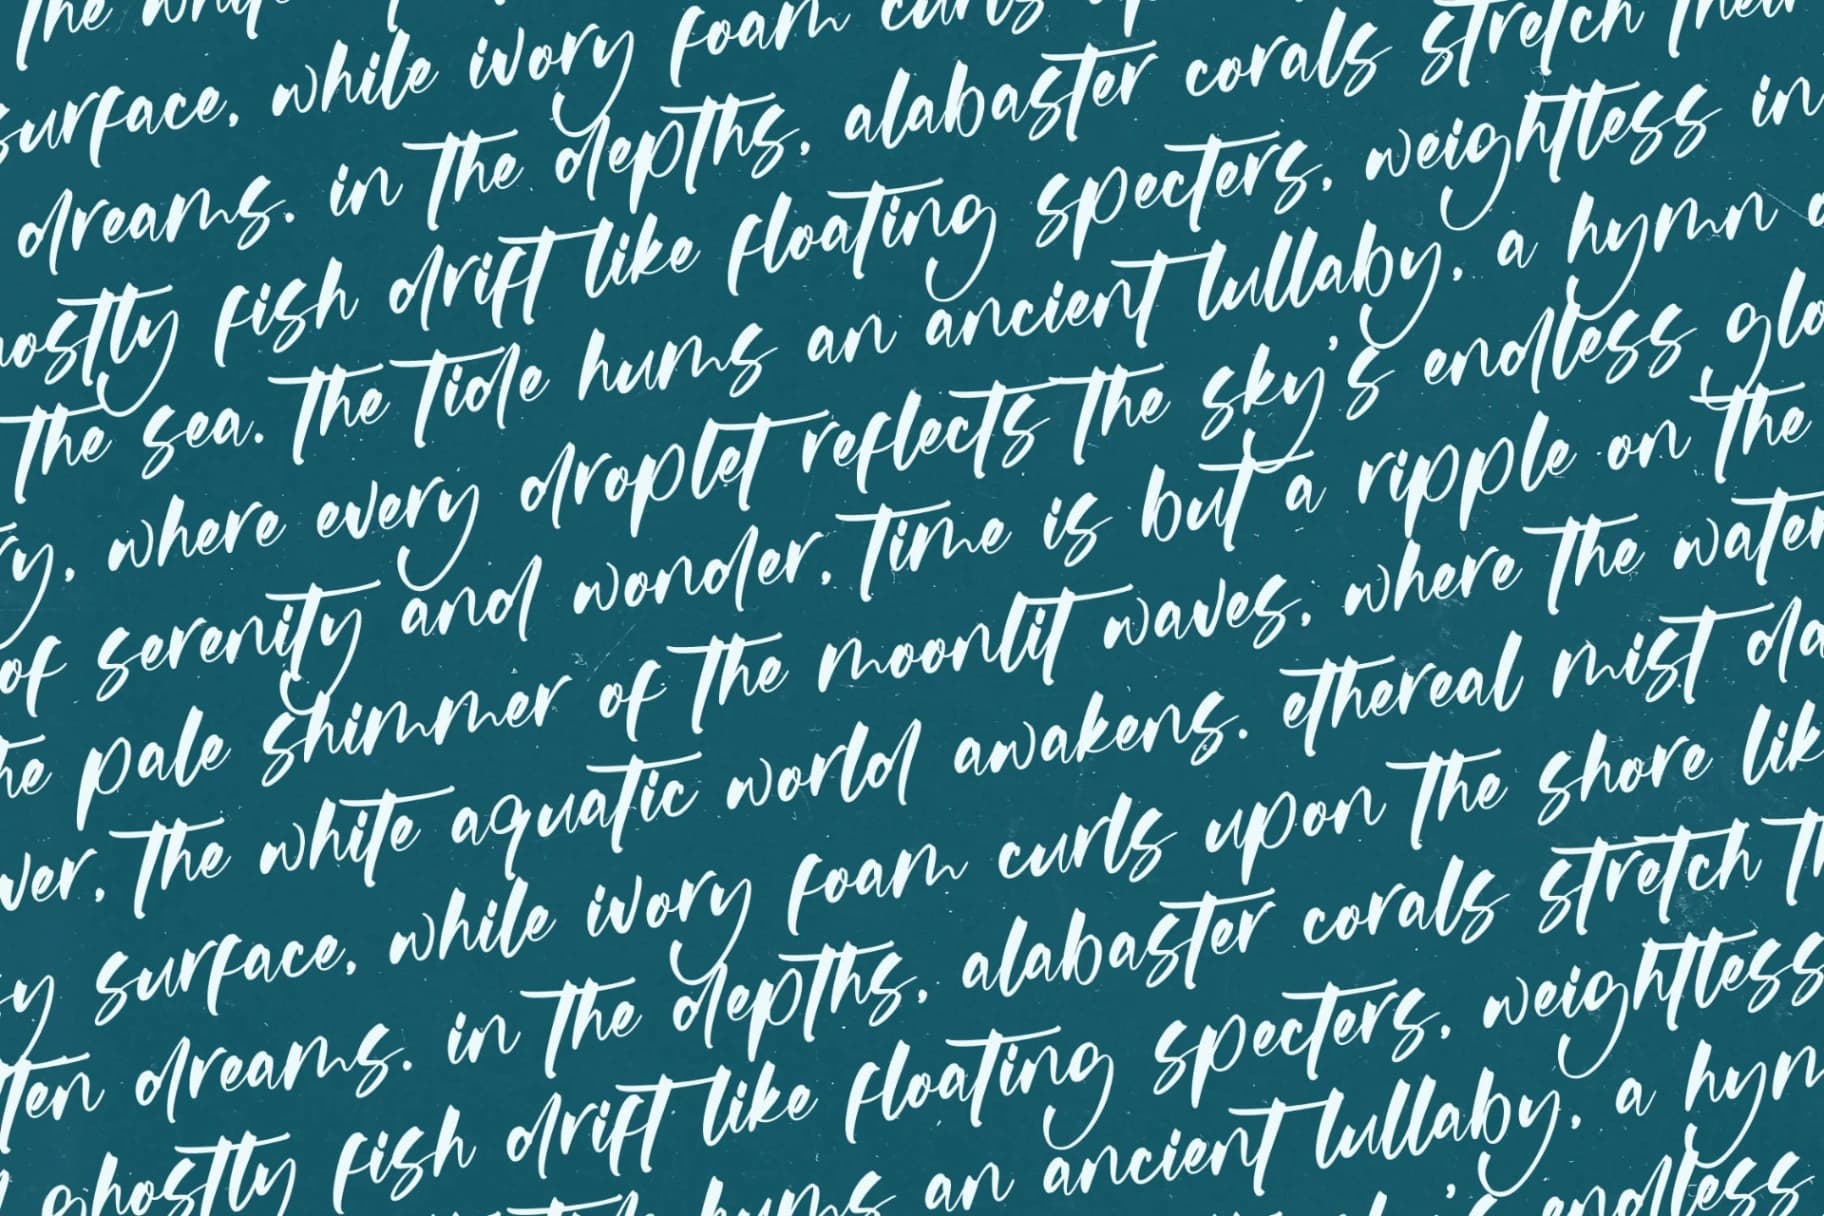 the white
surface, while ivory foam curls
dreams. in the depths, alabaster corals stretch their
ghostly fish drift like floating specters, weightless in
the sea. the tide hums an ancient lullaby, a hymn
where every droplet reflects the sky's endless
of serenity and wonder. time is but a ripple on the
the pale shimmer of the moonlit waves, where the water
the white aquatic world awakens. ethereal mist
surface, while ivory foam curls upon the shore
dreams. in the depths, alabaster corals stretch
ghostly fish drift like floating specters, weightless
hums an ancient lullaby, a
endless